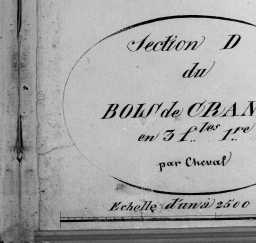 Section D
du
BOIS de CRAN
en 3 f.les 1.re
par Cheval
Echelle d'un à 2500